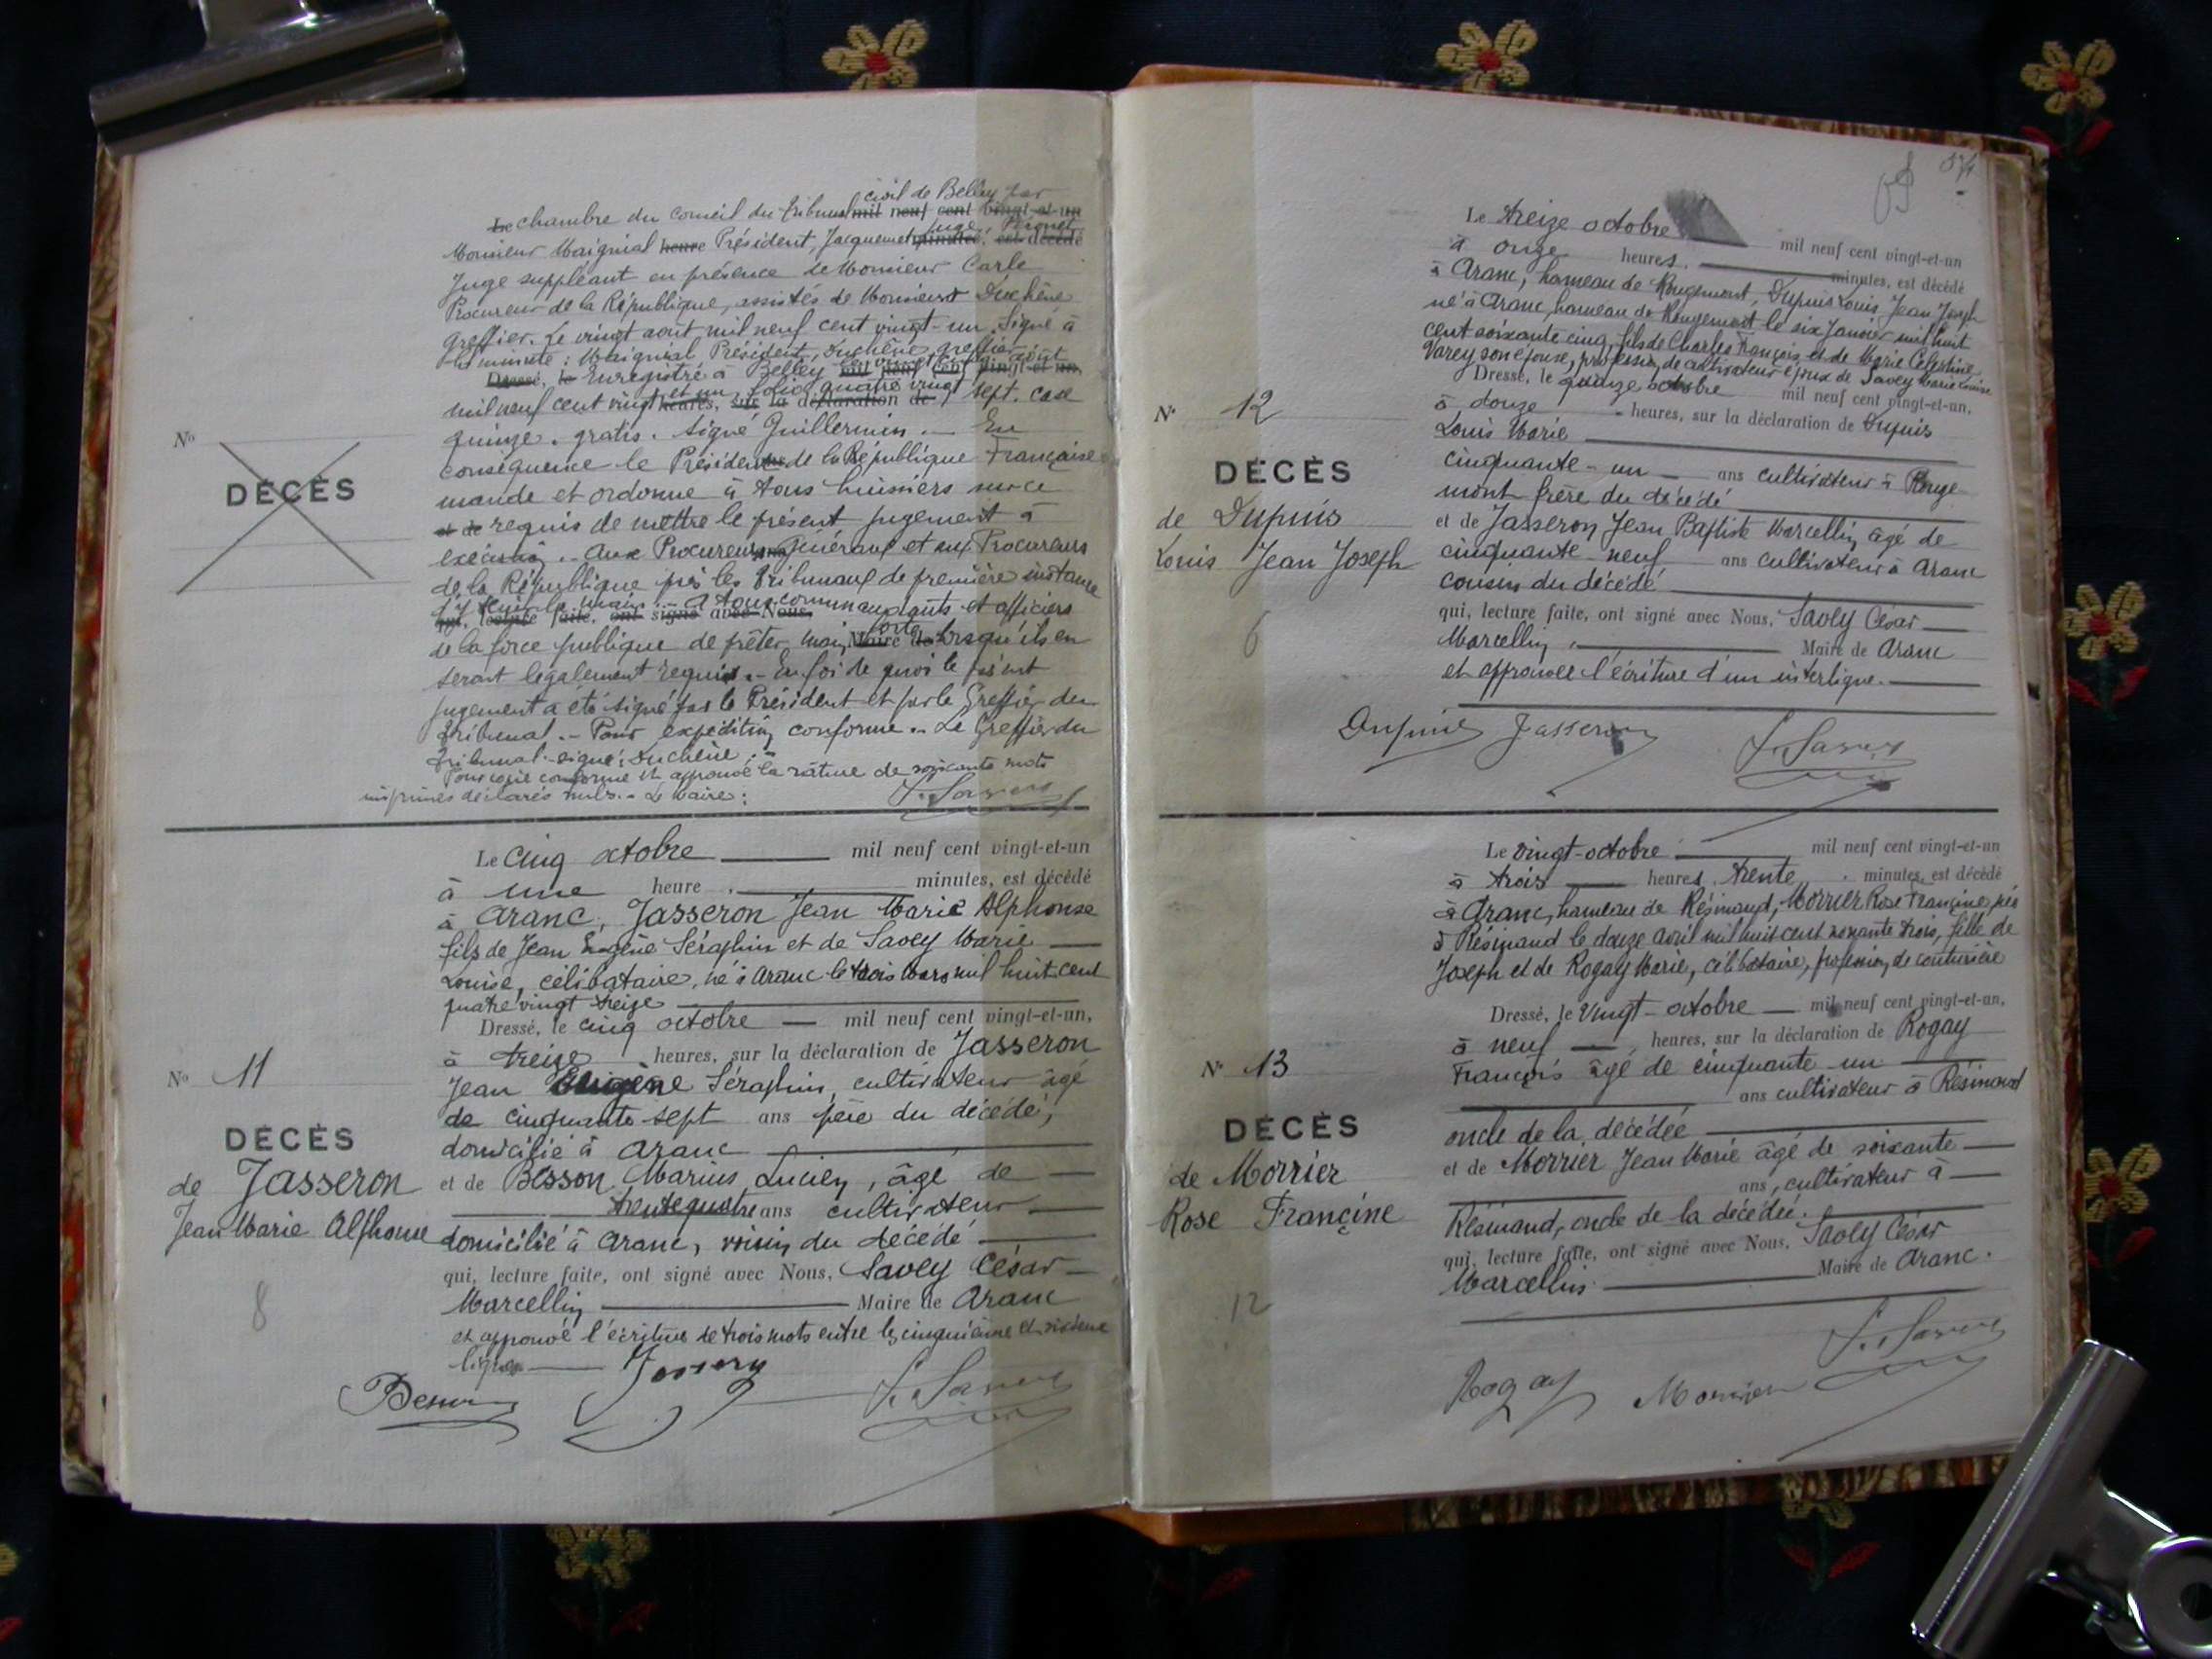 civil de Belley par
Le chambre du conseil du tribunal mil neuf cent vingt-et-un
Juge, Peronet
Monsieur Maignial heure Président, Jacquemet minutes, est décédé
Juge suppléant en présence de Monsieur Carle
Procureur de la République, assistés de Monsieur Duchêne
greffier. Le vingt août mil neuf cent vingt-un. Signé à
la minute : Maignial Président, Duchêne greffier
Dressé, le Enregistré à Belley le vingt cinq août mil neuf cent vingt-et-un,
mil neuf cent vingt et un folio quatre vingt sept. case
heures, sur la déclaration de
quinze. gratis. Signé Guillermin. — En
conséquence le Président de la République Française
mande et ordonne à tous huissiers sur ce
et de requis de mettre le présent jugement à
exécution. Aux Procureurs Généraux et aux Procureurs
de la République près les Tribunaux de première instance
d'y tenir la main. — A tous commandants et officiers
qui, lecture faite, ont signé avec Nous,
de la force publique de prêter main forte Maire de lorsqu'ils en
seront légalement requis. — En foi de quoi le présent
jugement a été signé par le Président et par le Greffier du
tribunal. — Pour expédition conforme. — Le Greffier du
tribunal. signé : Duchêne.
Pour copie conforme et approuvé la rature de soixante mots
imprimés déclarés nuls. — Le Maire :
No
DÉCÈS
Le cinq octobre mil neuf cent vingt-et-un
à une heure minutes, est décédé
à Aranc, Jasseron Jean Marie Alphonse
fils de Jean Eugène Séraphin et de Savey Marie
Louise, célibataire, né à Aranc le trois mars mil huit cent
quatre vingt treize
Dressé, le cinq octobre — mil neuf cent vingt-et-un,
à treize heures, sur la déclaration de Jasseron
Jean Eugène Séraphin, cultivateur âgé
de cinquante-sept ans père du décédé,
domicilié à Aranc
et de Besson Marius Lucien, âgé de
trente quatre ans cultivateur
domicilié à Aranc, voisin du décédé
qui, lecture faite, ont signé avec Nous, Savey César
Marcellin Maire de Aranc
et approuvé l'écriture de trois mots entre la cinquième et sixième
ligne
No 11
DÉCÈS
de Jasseron
Jean Marie Alphonse
8
Besson Jasseron
69
Le treize octobre mil neuf cent vingt-et-un
à onze heures minutes, est décédé
à Aranc, hameau de Rougemont, Dupuis Louis Jean Joseph
né à Aranc, hameau de Rougemont le six Janvier mil huit
cent soixante cinq, fils de Charles François et de Marie Célestine
Varey son épouse, profession de cultivateur époux de Savey Marie Louise
Dressé, le quinze octobre mil neuf cent vingt-et-un,
à douze heures, sur la déclaration de Dupuis
Louis Marie
cinquante-un — ans cultivateur à Rouge
mont frère du décédé
et de Jasseron Jean Baptiste Marcellin âgé de
cinquante neuf ans cultivateur à Aranc
cousin du décédé
qui, lecture faite, ont signé avec Nous, Savey César
Marcellin, Maire de Aranc
et approuvé l'écriture d'un interligne.
N° 12
DÉCÈS
de Dupuis
Louis Jean Joseph
6
Dupuis Jasseron
Le vingt-octobre mil neuf cent vingt-et-un
à trois heures trente minutes, est décédé
à Aranc, hameau de Résinand, Morrier Rose Françine, née
à Résinand le douze avril mil huit cent nonante trois, fille de
Joseph et de Rogay Marie, célibataire, profession de couturière
Dressé, le vingt-octobre — mil neuf cent vingt-et-un,
à neuf —, heures, sur la déclaration de Rogay
François âgé de cinquante un
ans cultivateur à Résinand
oncle de la décédée
et de Morrier Jean Marie âgé de soixante
ans, cultivateur à
Résinand, oncle de la décédée.
qui, lecture faite, ont signé avec Nous, Savey César
Marcellin Maire de Aranc.
N° 13
DÉCÈS
de Morrier
Rose Françine
12
Rogay Morrier